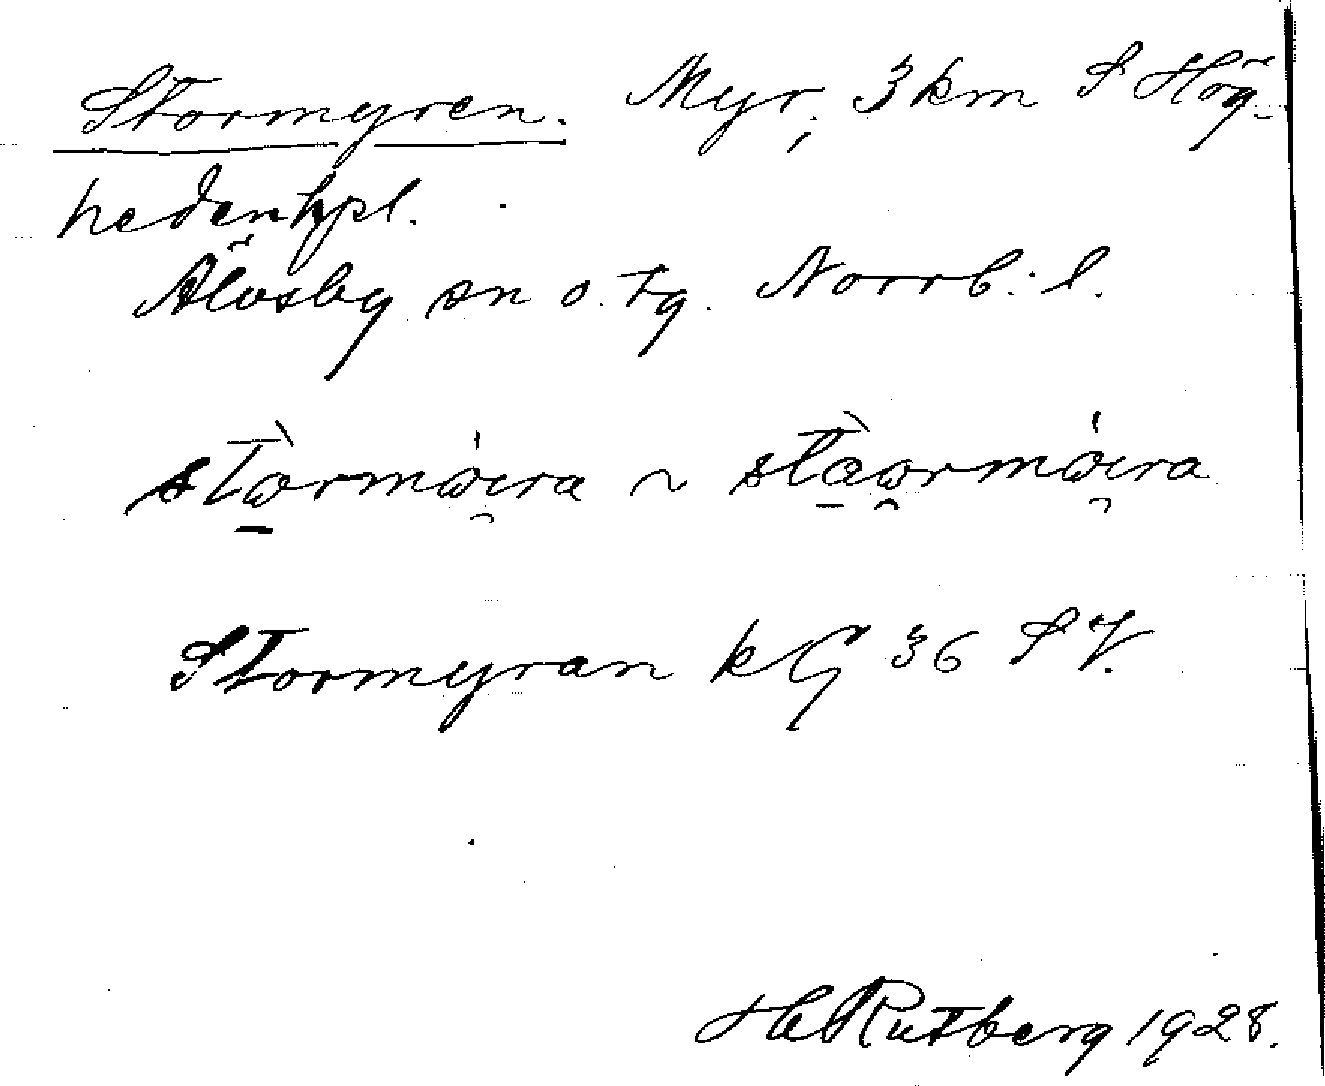 Stormyren. Myr, 3 km S Hög-
hedenhpl.
Älvsby sn o. tg. Norrb. l.
stωrmωιra ~ staωrmωιra
Stormyran kG 36 SV.
H Rutberg 1928.